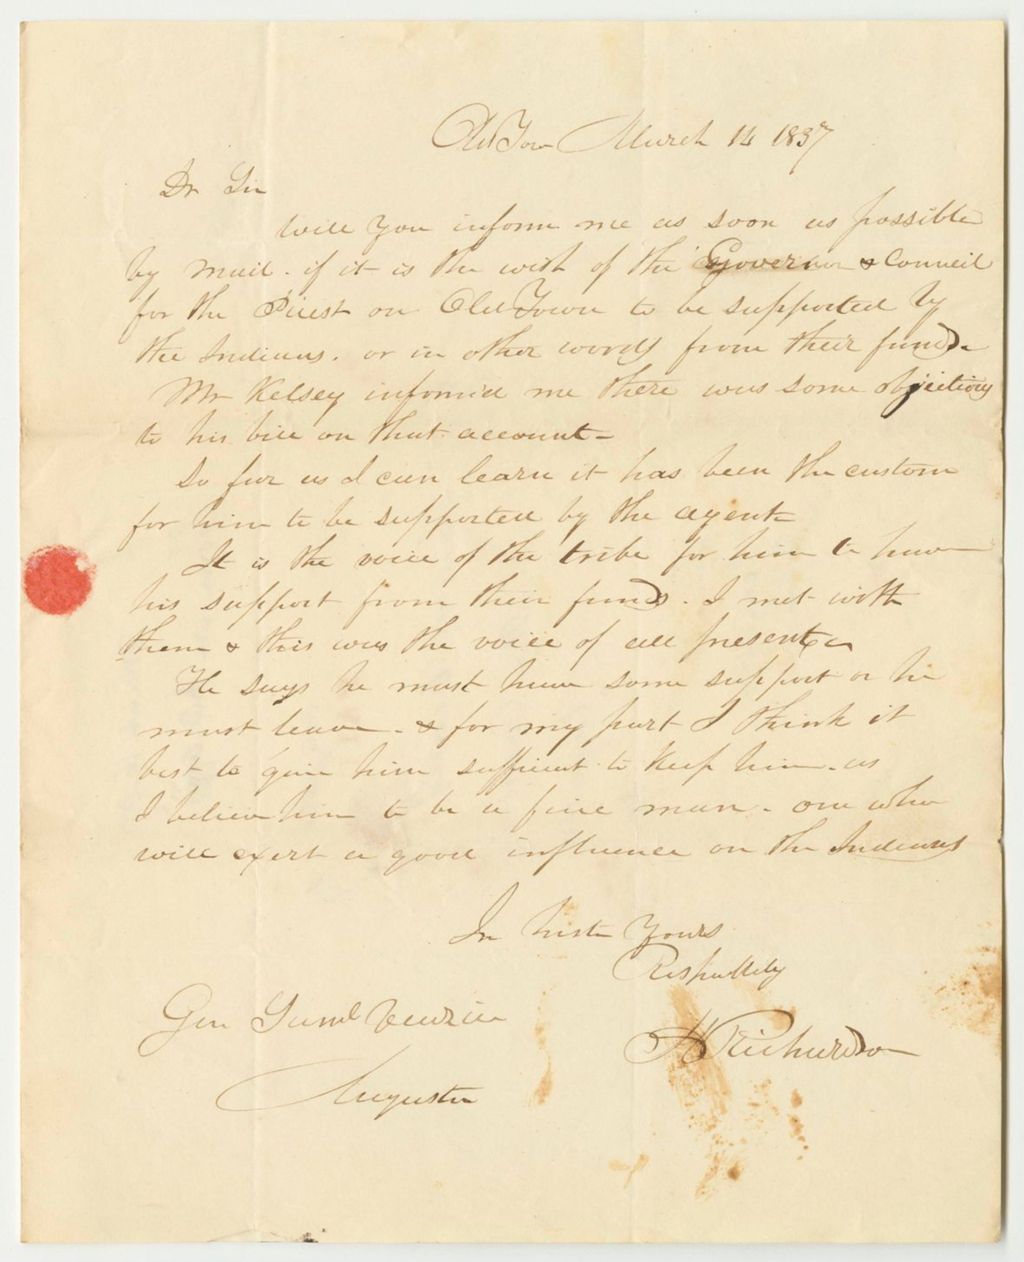 Old Town March 14 1837
Dr Sir
Will you inform me as soon as possible
by mail. if it is the wish of the Governor & Council
for the Priest on Old Town to be supported by
the Indians. or in other words from their fund.
Mr Kelsey informed me there was some objections
to his bill on that account-
So far as I can learn it has been the custom
for him to be supported by the agent
It is the voice of the tribe for him to have
his support from their funds. I met with
them & this was the voice of all present
He says he must have some support or he
must leave. & for my part I think it
best to give him sufficient to keep him. as
I believe him to be a fine man. one who
will exert a good influence on the Indians
In haste Yours
Respectfully
Richardson
Gen Saml Veazie
Augusta